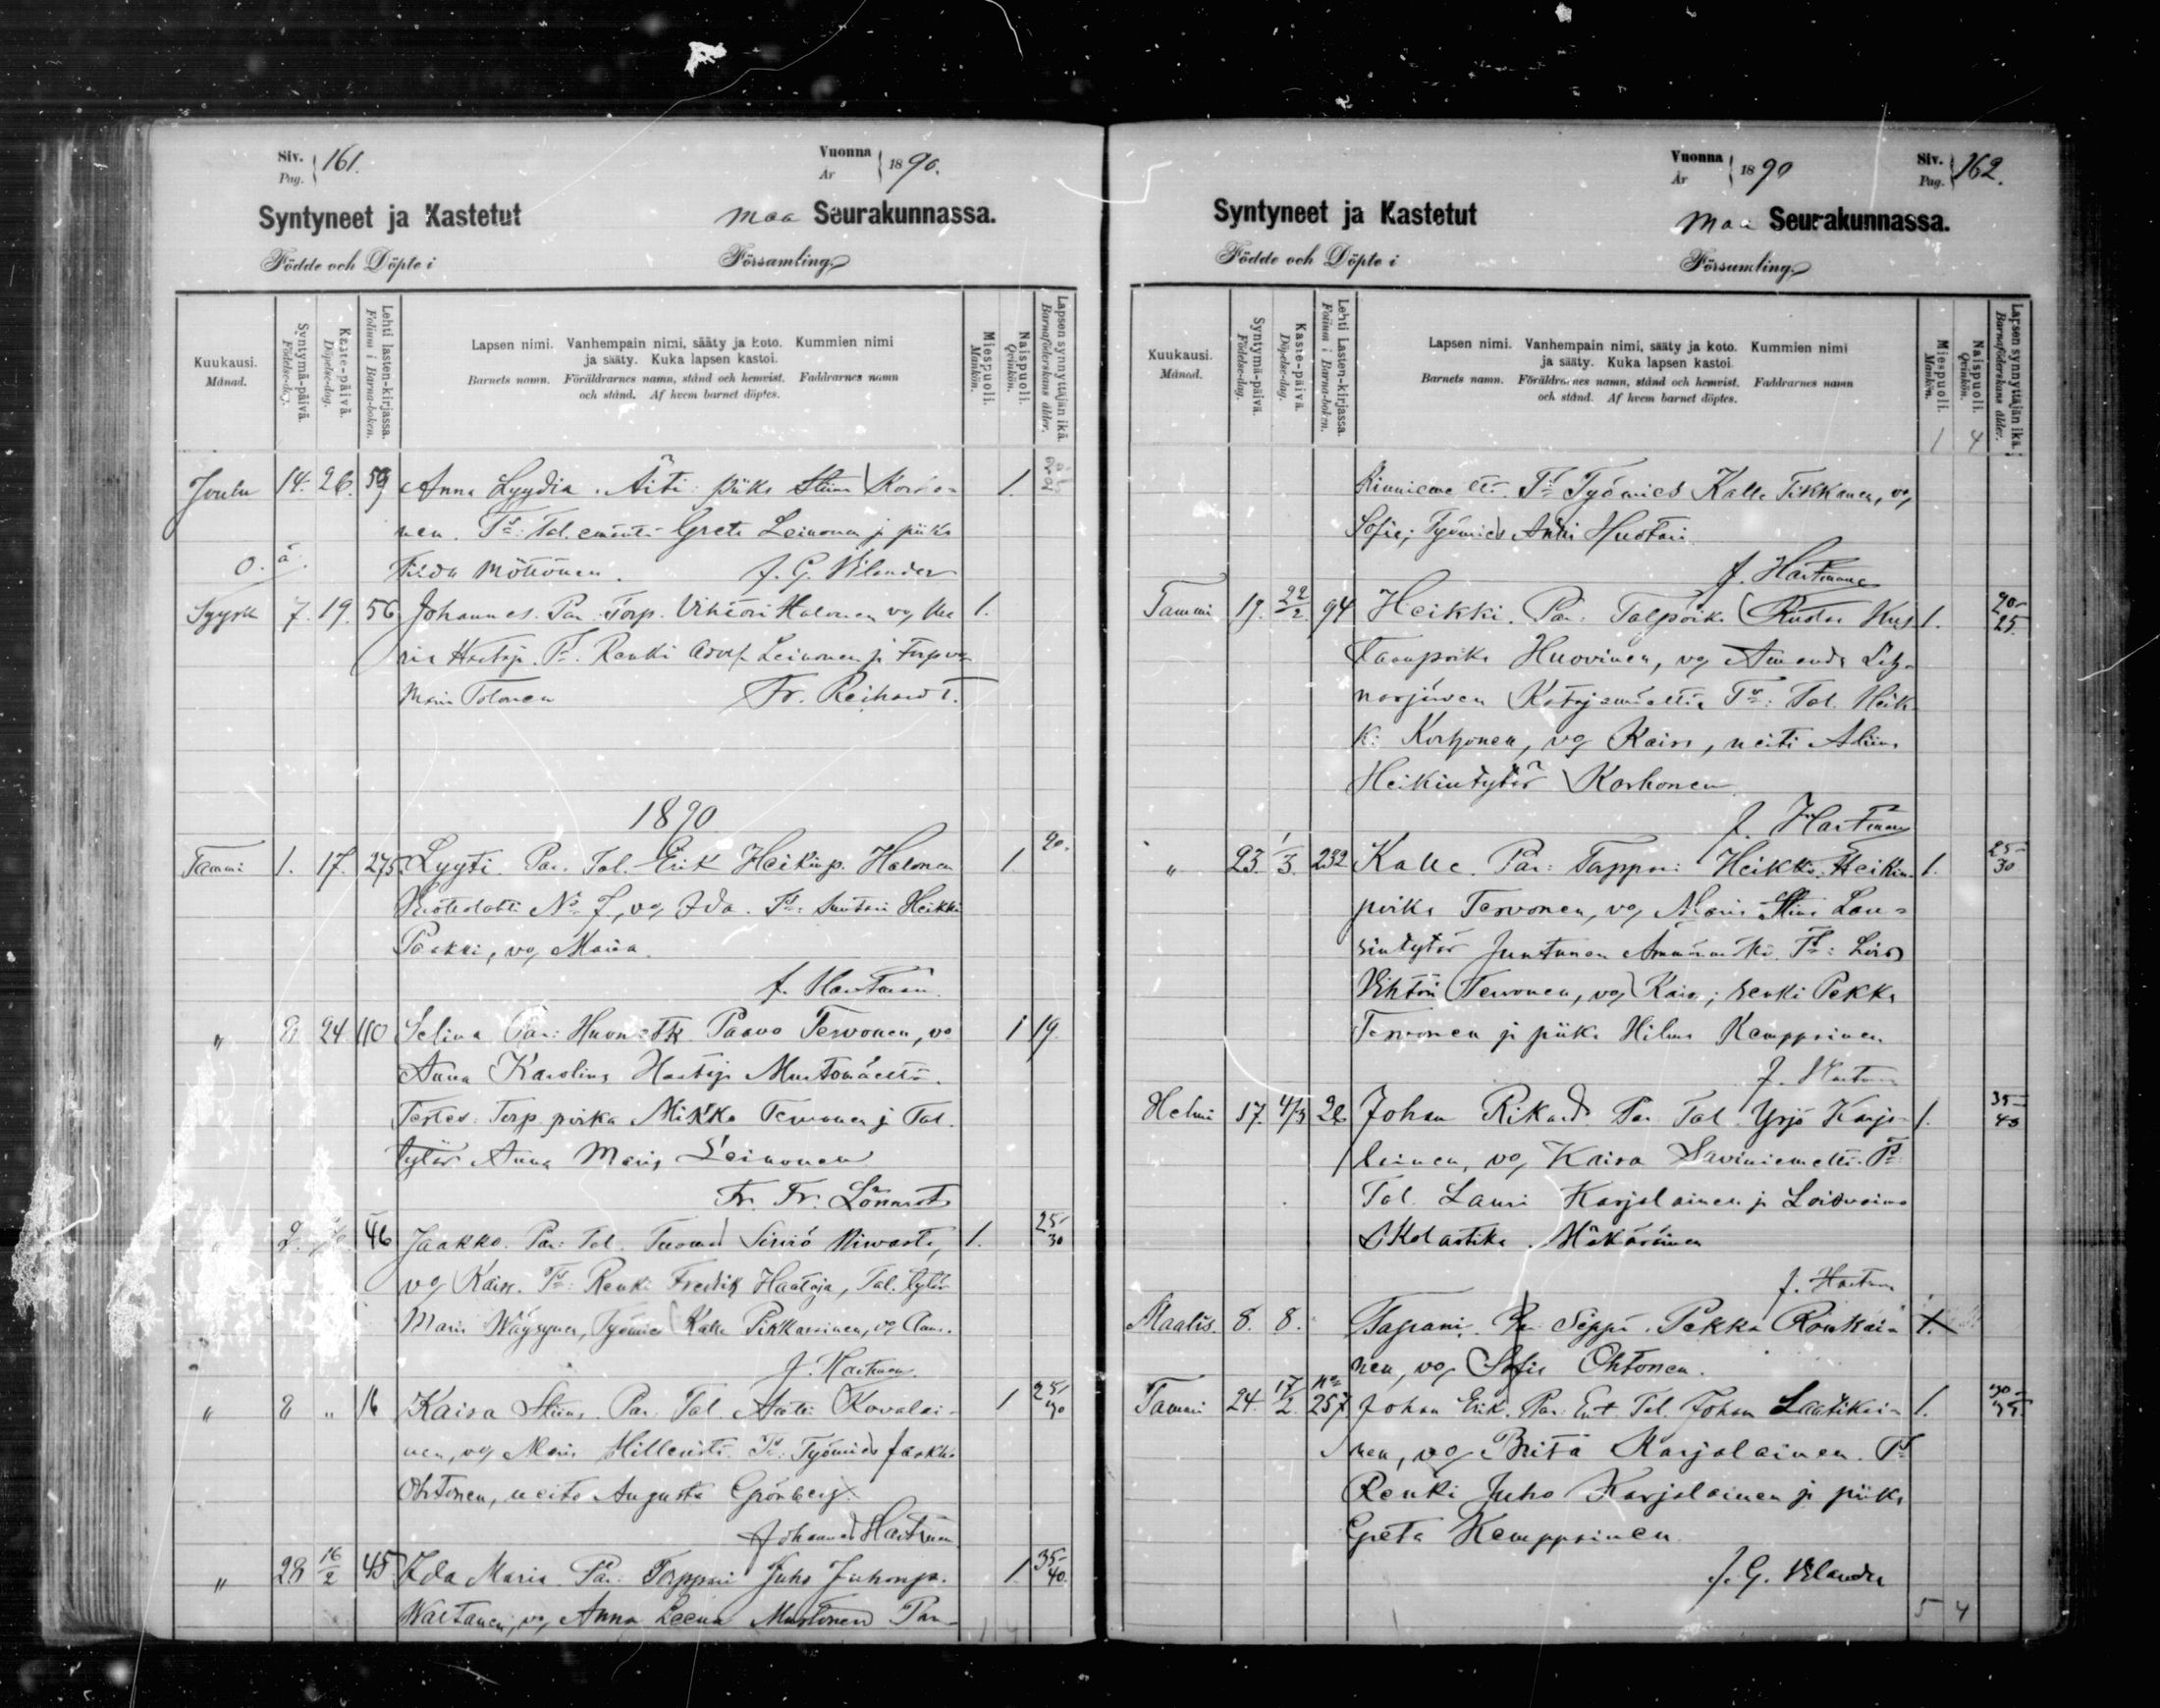 Siv. 161.
Pag.
Vuonna 1890.
År
Syntyneet ja Kastetut maa Seurakunnassa.
Födde och Döpte i Församling
Kuukausi. Månad.
Syntymä-päivä. Födelse-dag.
Kaste-päivä. Döpelse-dag.
Lehti lasten-kirjassa. Folium i Barna-boken.
Lapsen nimi. Vanhempain nimi, sääty ja koto. Kummien nimi
ja sääty. Kuka lapsen kastoi.
Barnets namn. Föräldrarnes namn, stånd och hemvist. Faddrarnes namn
och stånd. Af hvem barnet döptes.
Miespuoli. Mankön.
Naispuoli. Qvinkön.
Lapsen synnyttäjän ikä. Barnaföderskans ålder.
Joulu 14. 26. 59 Anna Lyydia. Äiti: piika Stiina Korho- 1.
nen. Td: Tal. emäntä Greta Leinonen ja piika
Tilda Möttönen. J. G. Vilander
Syysk 7. 19. 56 Johannes. Par: Torp. Vihtori Halonen vo, Ma 1.
ria Haataja. Td. Renki Adolf Leinonen ja Torp. vo
Maria Tolonen Fr. Reihardt.
1890
Tammi 1. 17. 275 Lyyti. Par. Tal. Erik Heikinp. Halonen 1. 20.
No 7, vo, Ida. Td: Suntari Heikki
Paakki, vo, Maria.
J. Hartman.
" 24. 110 Selina Par: Huon Paavo Tervonen, vo 1 19.
Anna Karolina Haataja Mustomäeltä.
Testes: Torp. poika Mikko Tervonen ja Tal.
tytär Anna Maria Leinonen
Fr. Fr. Lönnrot
2. 46 Jaakko. Par: Tal. Tuomas Sirviö, 1. 25-30
vo, Kaisa. Td: Renki Fredrik Haataja, Tal. tytär
Maria Wäyrynen, Työmies Kalle Pikkarainen, vo
J. Hartman.
" 8 " 16 Kaisa Stiina. Par. Tal. Antti Kovalai- 1 25-30
nen, vo, Maria. Td: Työmies Jaakko
Ohtonen, neito Augusta Grönberg.
Johannes Hartman
" 28 16/2 45 Ida Maria. Par: Torppari Juho Juhonp. 1. 35-40.
Wartanen, vo, Anna Leena Mustonen
Vuonna 1890
År
Siv. 162.
Pag.
Syntyneet ja Kastetut maa Seurakunnassa.
Födde och Döpte i Församling
Kuukausi. Månad.
Syntymä-päivä. Födelse-dag.
Kaste-päivä. Döpelse-dag.
Lehti Lasten-kirjassa. Folium i Barna-boken.
Lapsen nimi. Vanhempain nimi, sääty ja koto. Kummien nimi
ja sääty. Kuka lapsen kastoi.
Barnets namn. Föräldrarnes namn, stånd och hemvist. Faddrarnes namn
och stånd. Af hvem barnet döptes.
Miespuoli. Mankön.
Naispuoli. Qvinkön.
Lapsen synnyttäjän ikä. Barnaföderskans ålder.
1 4
Td Työmies Kalle Tikkanen, vo,
Sofie; Työmies Antti Huotari
J. Hartman
Tammi 19. 22/2. 94 Heikki. Par. Talpoika Kus 1. 20-25.
taanpoika Huovinen, vo, Amanda
Td: Tal. Heik-
ki Korhonen, vo, Kaisa, neiti Stiina
Heikintytär Korhonen
J. Hartman
" 23. 1/3. 232 Kalle. Par: Torppari Heikki Heikin- 1. 25-30
poika Tervonen, vo, Maria Stiina Lau-
rintytär Juntunen Ämmänmäki. Td:
Vihtori Tervonen, vo, Kaisa; renki Pekka
Tervonen ja piika Hilma Kemppainen.
J. Hartman
Helmi 17. 4/3 Johan Rikard. Par. Tal. Yrjö Karja- 1. 35-40
lainen, vo, Kaisa Saviniemeltä. Td
Tal. Lauri Karjalainen ja
Skolastika Mäkäräinen
J. Hartman
Maalis. 8. 8. Tasrani. Par: Seppä Pekka Ronkai- 1.
nen, vo, Sofie Ohtonen.
Tammi 24. 17/2. 257 Johan Erik. Par: Ent. Tal. Johan Laatikai- 1. 30-35.
nen, vo, Brita Karjalainen. Td
Renki Juho Karjalainen ja piika
Greta Kemppainen.
J. G. Vilander
5 4